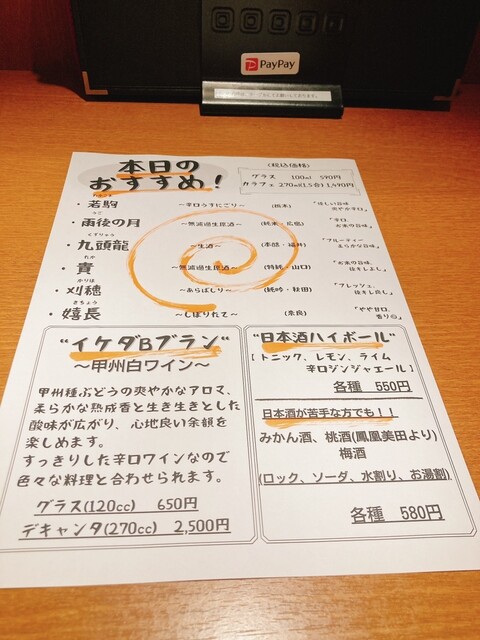 PayPay
本日の
おすすめ!
(税込価格)
グラス 100ml 590円
カラフェ 270ml(1.5合) 1,490円
・若駒 ～辛口うすにごり～ (栃木) 『優しい旨味 爽やか辛口』
うご
・雨後の月 ～無濾過生原酒～ (純米・広島) 『辛口、お米の旨味』
くずりゅう
・九頭龍 ～生酒～ (本醸・福井) 『フルーティー まろやかな旨味』
たか
・貴 ～無濾過生原酒～ (特純・山口) 『お米の旨味、後キレよし』
かりほ
・刈穂 ～あらばしり～ (純吟・秋田) 『フレッシュ、後キレ良し』
きちょう
・嬉長 ～しぼりたて～ (奈良) 『やや甘口、香り◎』
"イケダBブラン"
～甲州白ワイン～
甲州種ぶどうの爽やかなアロマ、
柔らかな熟成香と生き生きとした
酸味が広がり、心地良い余韻を
楽しめます。
すっきりした辛口ワインなので
色々な料理と合わせられます。
グラス(120cc) 650円
デキャンタ(270cc) 2,500円
"日本酒ハイボール"
[トニック、レモン、ライム
辛口ジンジャエール]
各種 550円
日本酒が苦手な方でも！！
みかん酒、桃酒(鳳凰美田より)
梅酒
(ロック、ソーダ、水割り、お湯割)
各種 580円